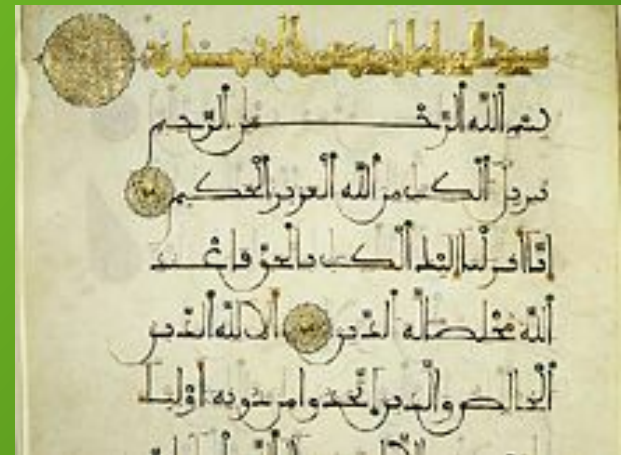 سورة
بسم الله الرحمن الرحيم
تنزيل الكتب من الله العزيز الحكيم
إنا أنزلنا إليك الكتب بالحق فاعبد
الله مخلصا له الدين ألا لله الدين
الخالص والذين اتخذوا من دونه أولياء